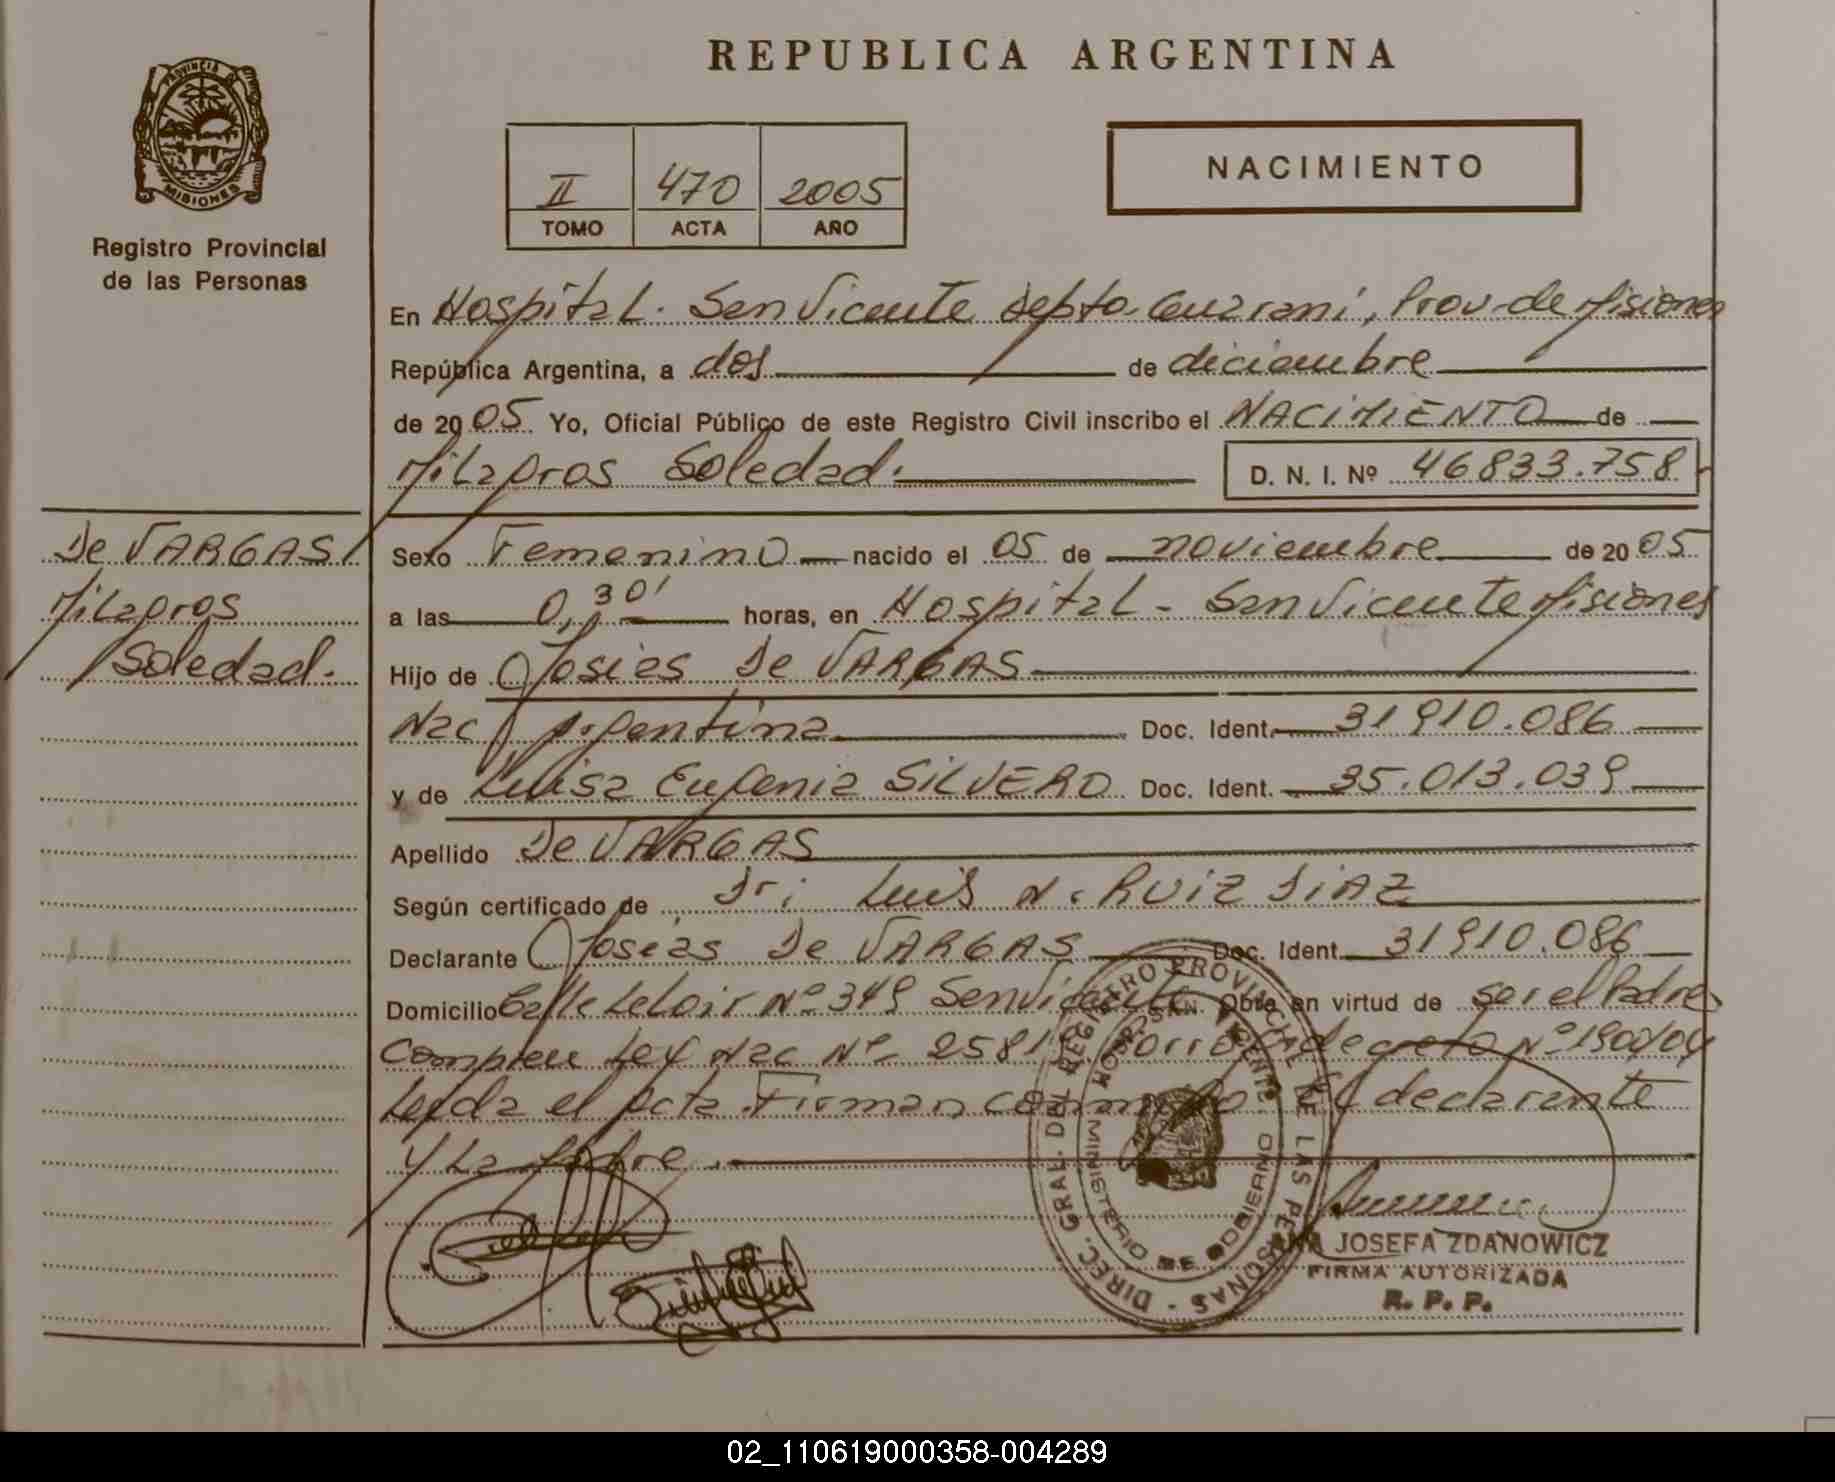 REPUBLICA ARGENTINA
PROVINCIA D
MISIONES
Registro Provincial
de las Personas
II 470 2005
TOMO ACTA AÑO
NACIMIENTO
En Hospital. San Vicente Depto. Guarani, Prov. de Misiones
República Argentina, a dos de diciembre
de 2005 Yo, Oficial Público de este Registro Civil inscribo el NACIMIENTO de
Milagros Soledad. D. N. I. Nº 46833.758
De VARGAS
Milagros
Soledad.
Sexo Femenino nacido el 05 de noviembre de 2005
a las 0,30' horas, en Hospital - San Vicente Misiones
Hijo de Josias De VARGAS
Nac Argentina Doc. Ident. 31910.086
y de Luisa Eugenia SILVERO Doc. Ident. 35.013.039
Apellido De VARGAS
Según certificado de Dr; Luis N. RUIZ DIAZ
Declarante Josias De VARGAS Doc. Ident. 31910.086
Domicilio Calle Leloir Nº 349 San Vicente Obra en virtud de ser el Padre
Ley Nac Nº decreto Nº 1900/04
Leida el Acta Firman conmigo El declarante
y La Madre.
DIREC. GRAL. DEL REGISTRO PROVINCIAL DE LAS PERSONAS -
MINISTERIO DE GOBIERNO
HOSP. SAN VICENTE
ANA JOSEFA ZDANOWICZ
FIRMA AUTORIZADA
R. P. P.
02_110619000358-004289